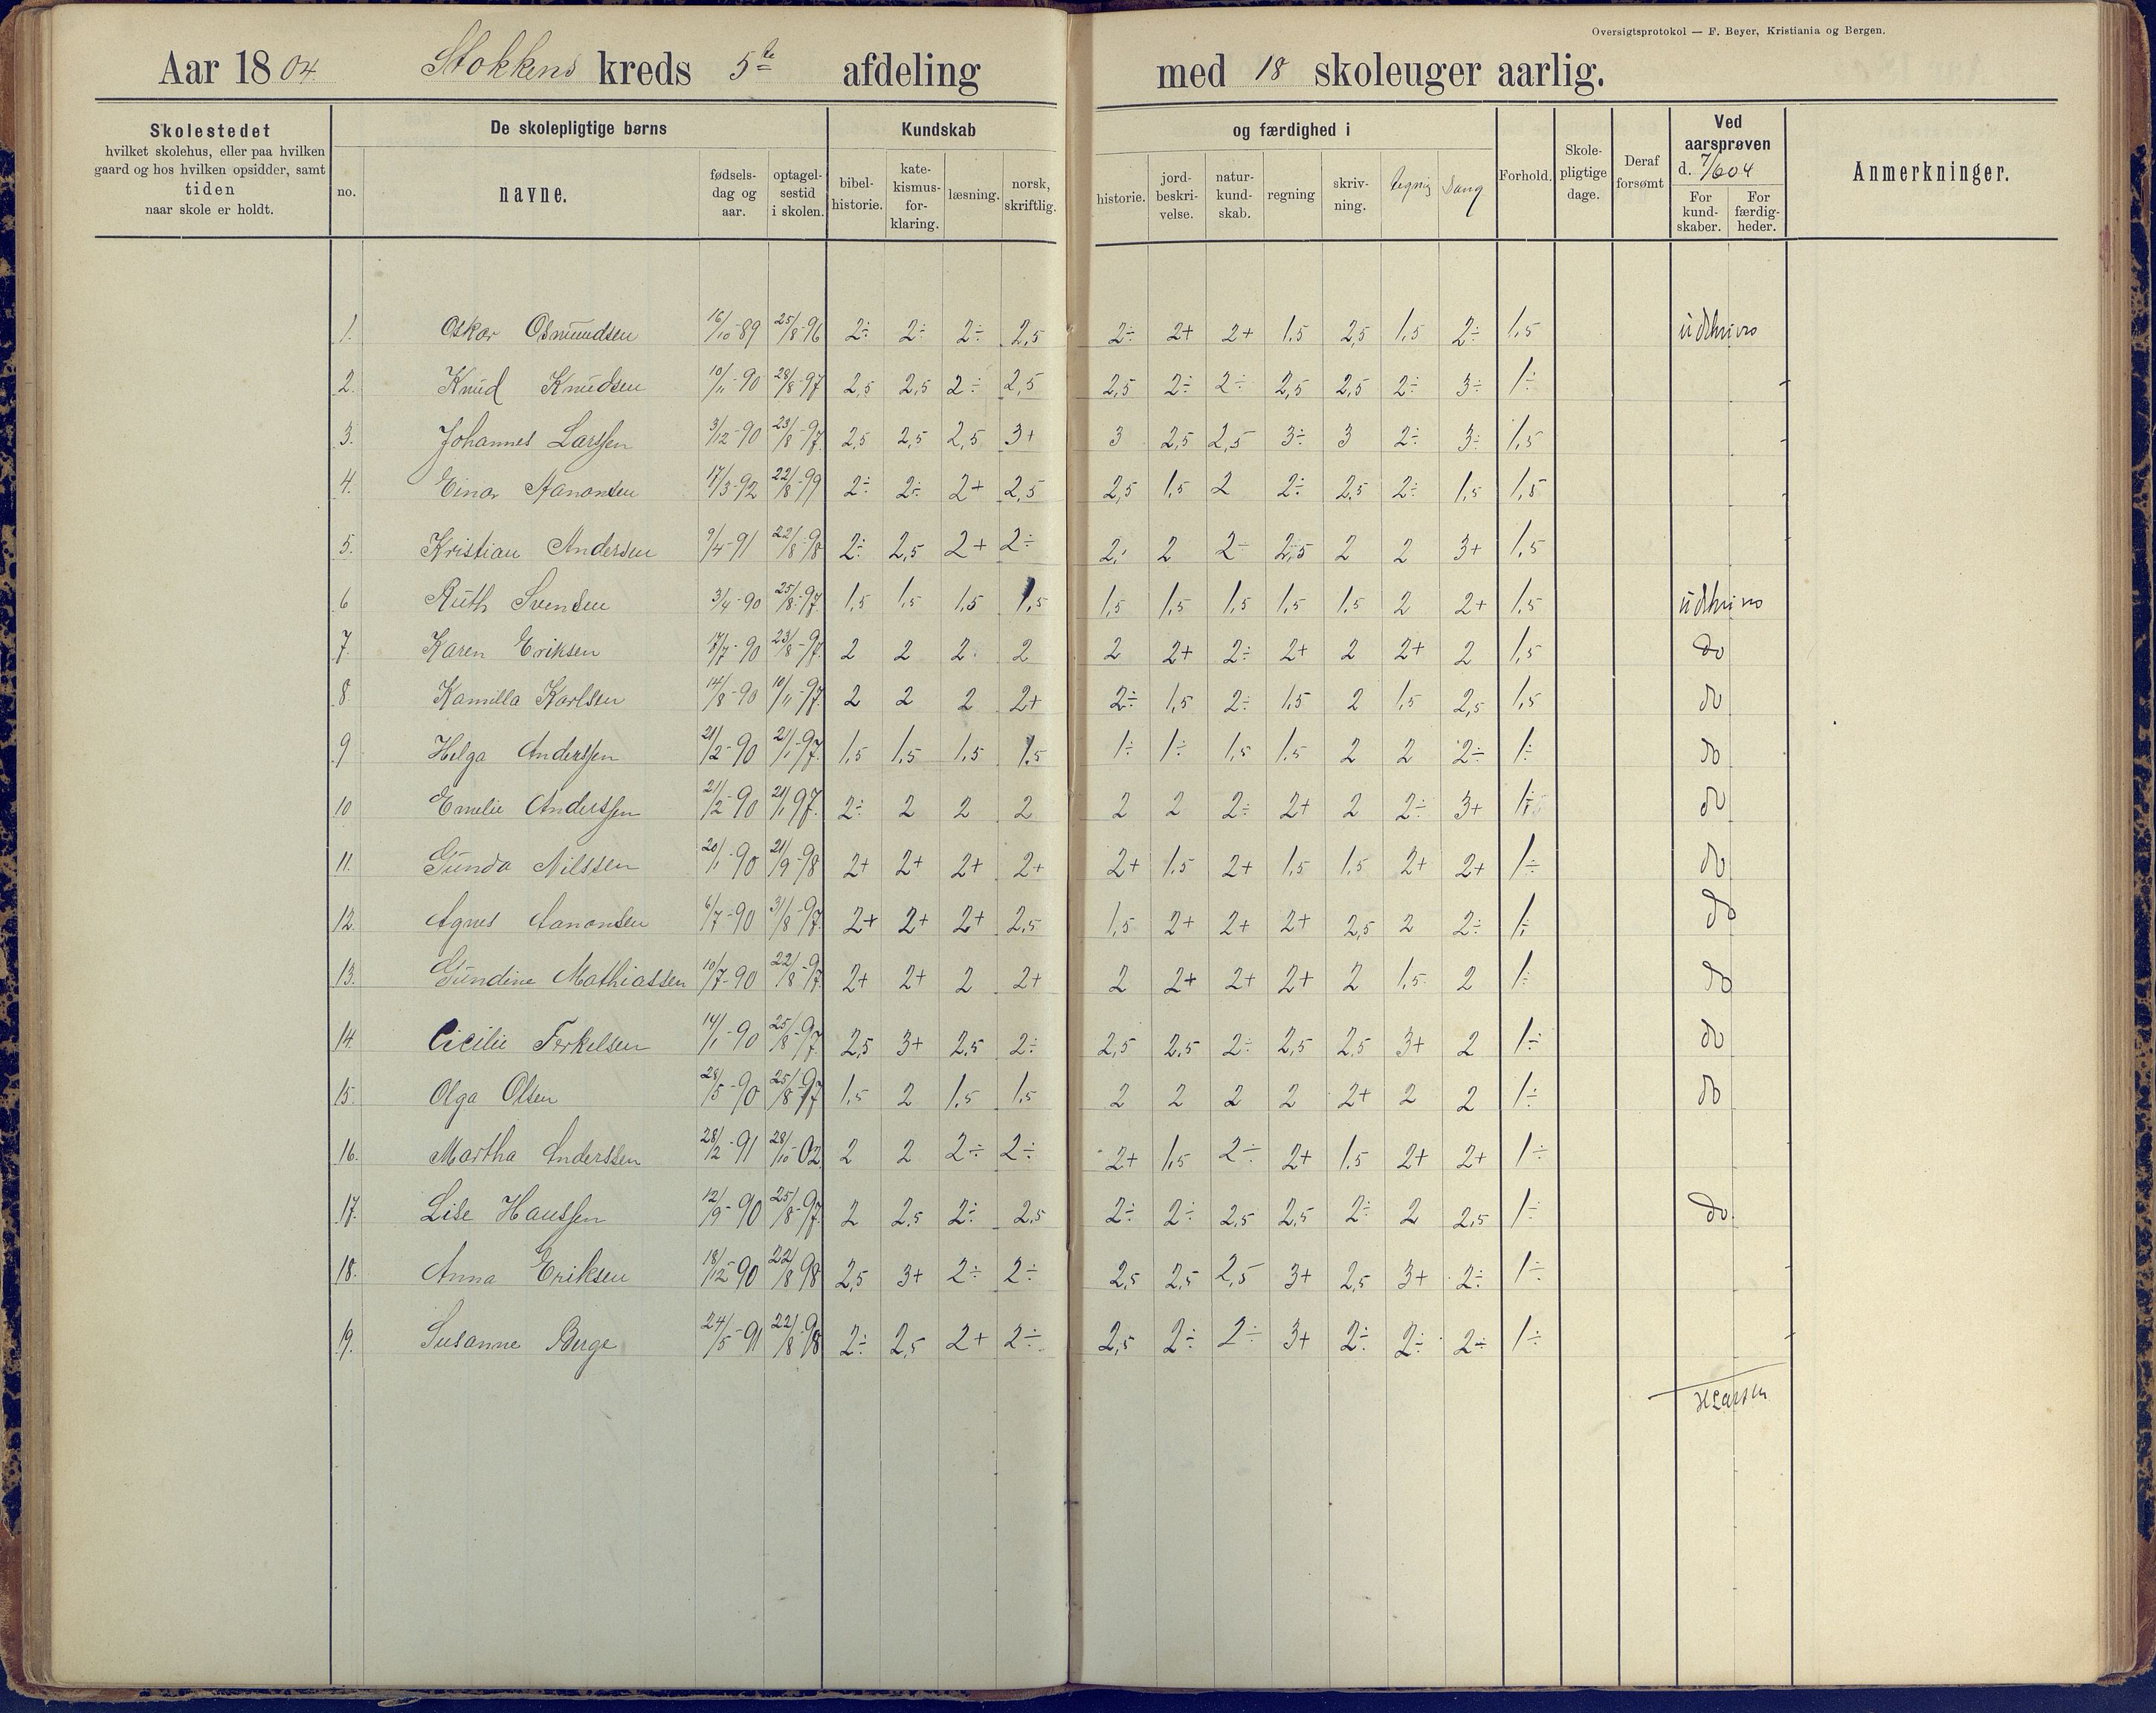 Oversigtsprotokol — F. Beyer, Kristiania og Bergen.
Aar 1804. Stokkens kreds 5te afdeling med 18 skoleuger aarlig.
Skolestedet
hvilket skolehus, eller paa hvilken
gaard og hos hvilken opsidder, samt
tiden
naar skole er holdt.
De skolepligtige børns
no.
navne.
fødsels-
dag og
aar.
optagel-
sestid
i skolen.
Kundskab
bibel-
historie.
kate-
kismus-
for-
klaring.
læsning.
norsk,
skriftlig.
og færdighed i
historie.
jord-
beskri-
velse.
natur-
kund-
skab.
regning
skriv-
ning.
tegning
Sang
Forhold.
Skole-
pligtige
dage.
Deraf
forsømt
Ved
aarsprøven
d. 7/6 04
For
kund-
skaber.
For
færdig-
heder.
Anmerkninger.
1. Oskar Osmundsen 16/10-89 25/8-96 2÷ 2÷ 2÷ 2,5 2÷ 2+ 2+ 1,5 2,5 1,5 2÷ 1,5 udskrives
2. Knud Knudsen 10/11-90 28/8-97 2,5 2,5 2÷ 2,5 2,5 2÷ 2÷ 2,5 2,5 2÷ 3÷ 1÷
3. Johannes Larssen 3/12-90 23/8-97 2,5 2,5 2,5 3+ 3 2,5 2,5 3÷ 3 2÷ 3÷ 1,5
4. Einar Aanonsen 17/3-92 22/8-99 2÷ 2÷ 2+ 2,5 2,5 1,5 2 2÷ 2,5 2÷ 1,5 1,5
5. Kristian Andersen 9/4-91 22/8-98 2÷ 2,5 2+ 2÷ 2÷ 2 2÷ 2,5 2 2 3+ 1,5
6 Ruth Svendsen 3/4-90 25/8-97 1,5 1,5 1,5 1,5 1,5 1,5 1,5 1,5 1,5 2 2+ 1,5 udskrives
7. Karen Eriksen 17/7-90 23/8-97 2 2 2 2 2 2+ 2÷ 2+ 2 2+ 2 1,5 do
8 Kamilla Karlsen 14/8-90 10/11-97 2 2 2 2+ 2÷ 1,5 2÷ 1,5 2 1,5 2,5 1,5 do
9 Helga Anderssen 21/2-90 21/1-97 1,5 1,5 1,5 1,5 1÷ 1÷ 1,5 1,5 2 2 2÷ 1÷ do
10 Emelie Anderssen 21/2-90 21/1 97. 2÷ 2 2 2 2 2 2÷ 2+ 2 2÷ 3+ 1÷ do
11. Gunda Nilssen 20/1-90 21/9-98 2+ 2+ 2+ 2+ 2+ 1,5 2+ 1,5 1,5 2+ 2+ 1÷ do
12. Agnes Aanonsen 6/7-90 31/8-97 2+ 2+ 2+ 2,5 1,5 2+ 2+ 2+ 2,5 2 2÷ 1÷ do
13. Gundine Mathiassen 10/7-90 22/8-97 2+ 2+ 2 2+ 2 2+ 2+ 2+ 2 1,5 2 1÷ do
14. Cicilie Terkelsen 14/1-90 25/8-97 2,5 3+ 2,5 2÷ 2,5 2,5 2÷ 2,5 2,5 3+ 2 1÷ do
15. Olga Olsen 28/5-90 25/8-97 1,5 2 1,5 1,5 2 2 2 2 2+ 2 2 1÷ do
16. Martha Anderssen 28/2-91 28/10-02 2 2 2÷ 2÷ 2+ 1,5 2÷ 2+ 1,5 2+ 2+ 1÷
17. Lise Hanssen 12/9-90 25/8-97 2 2,5 2÷ 2,5 2÷ 2÷ 2,5 2,5 2÷ 2 2,5 1÷ do
18. Anna Eriksen 18/12-90 22/8 98 2,5 3+ 2÷ 2÷ 2,5 2,5 2,5 3+ 2,5 3+ 2÷ 1÷
19. Susanne Berge 24/5-91 22/8-98 2÷ 2,5 2+ 2÷ 2,5 2÷ 2÷ 3+ 2÷ 2÷ 2÷ 1÷
HLarsen